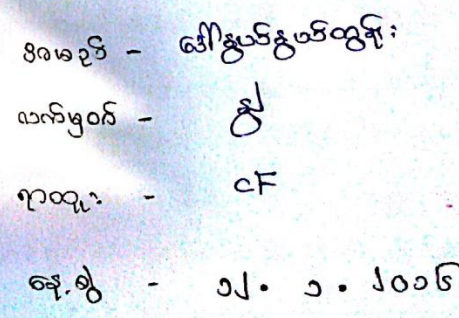 ဒါယဥ် - ဒေါ်နွယ်နွယ်ထွန်း
လက်မှတ် - နွယ်
ရာထူး - CF
နေ့စွဲ - ၁၂.၁.၂၀၁၆